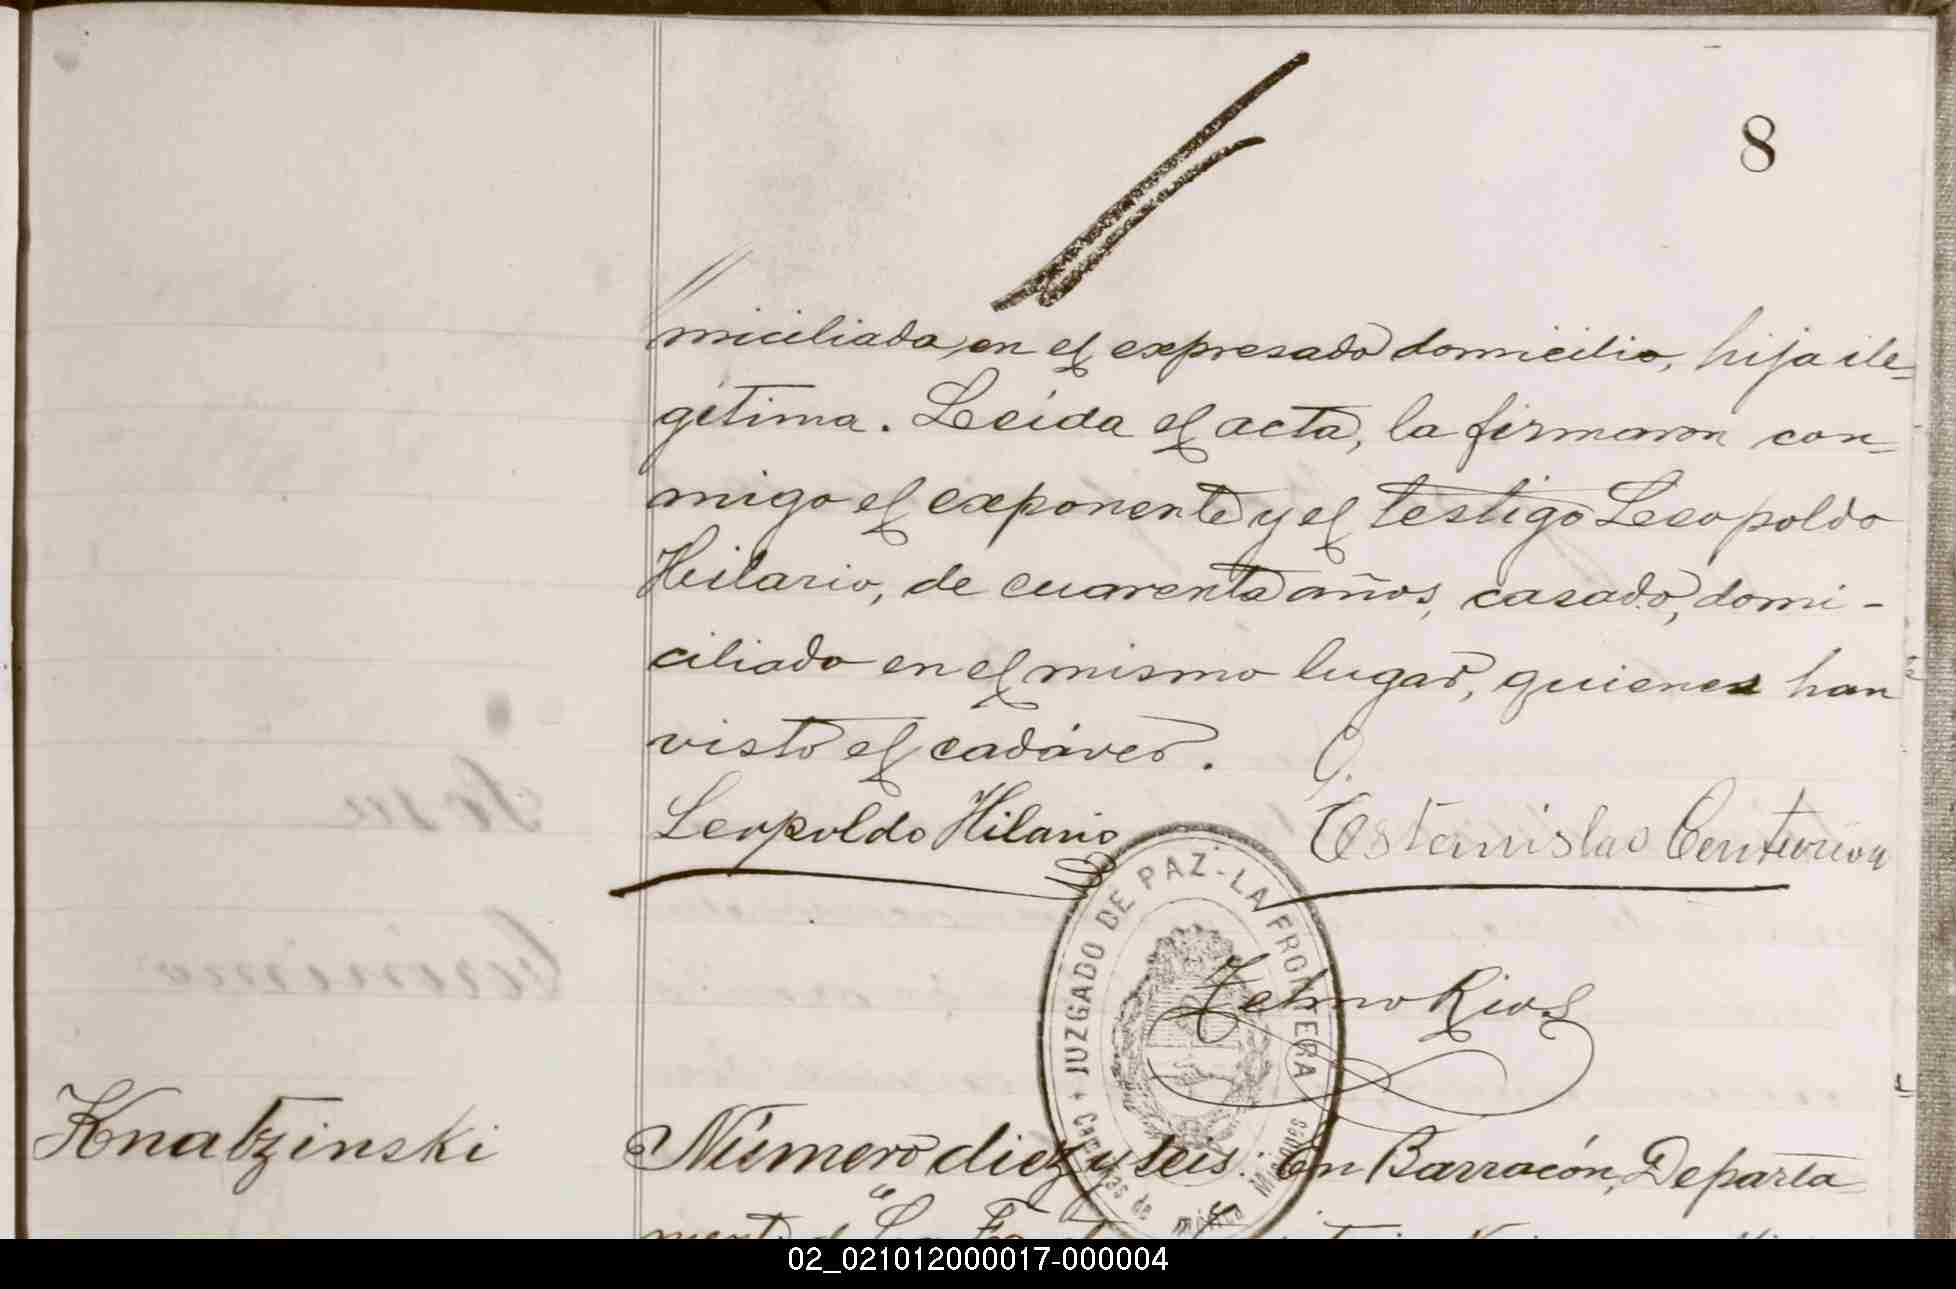 8
miciliada en el expresado domicilio, hija ile=
gítima. Leída el acta, la firmaron con=
migo el exponente y el testigo Leopoldo
Hilario, de cuarenta años, casado, domi-
ciliado en el mismo lugar, quienes han
visto el cadáver.
Leopoldo Hilario Estanislao Centurion
JUZGADO DE PAZ - LA FRONTERA
Telmo Rios
Misiones
Knatzinski Número diez y seis. En Barracón, Departa=